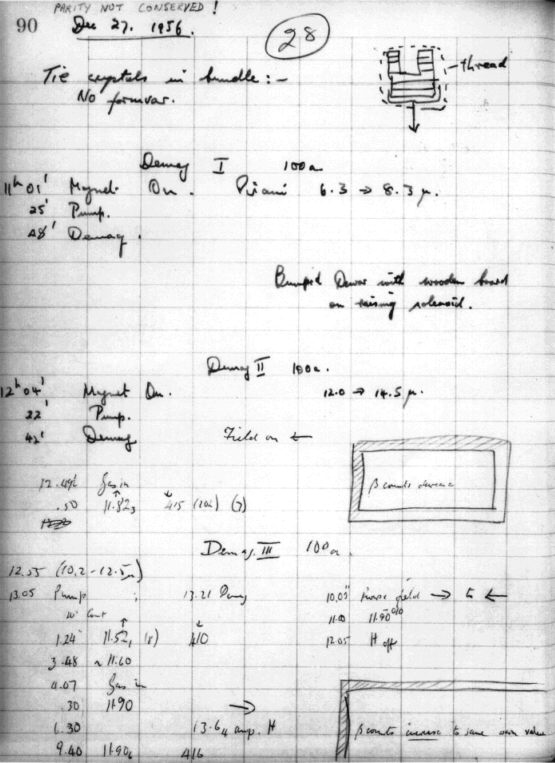 PARITY NOT CONSERVED !
90 Dec 27. 1956.
28
Tie crystals in bundle :-
No formvar.
thread
Demag I 100a.
11h 01' Magnet On. Pirani 6.3 → 8.3 μ.
25' Pump.
48' Demag.
Bumped Dewar with wooden board
on raising solenoid.
Demag II 100a.
12h 04' Magnet On. 12.0 → 14.5 μ.
22' Pump.
42' Demag Field on ←
Gas in
.50 11.82
β counts decrease
Demag. III 100a.
12.55 (10.2 - 12.5μ)
13.05 Pump 13.21 Demag
10.05 field → to ←
1.24 11.52 410
11.90
12.05 H off
3.48 ~ 11.60
4.07 Gas in
.30 11.90 →
6.30 13.6 amp. H
9.40 11.90 416
β counts increase to same own value